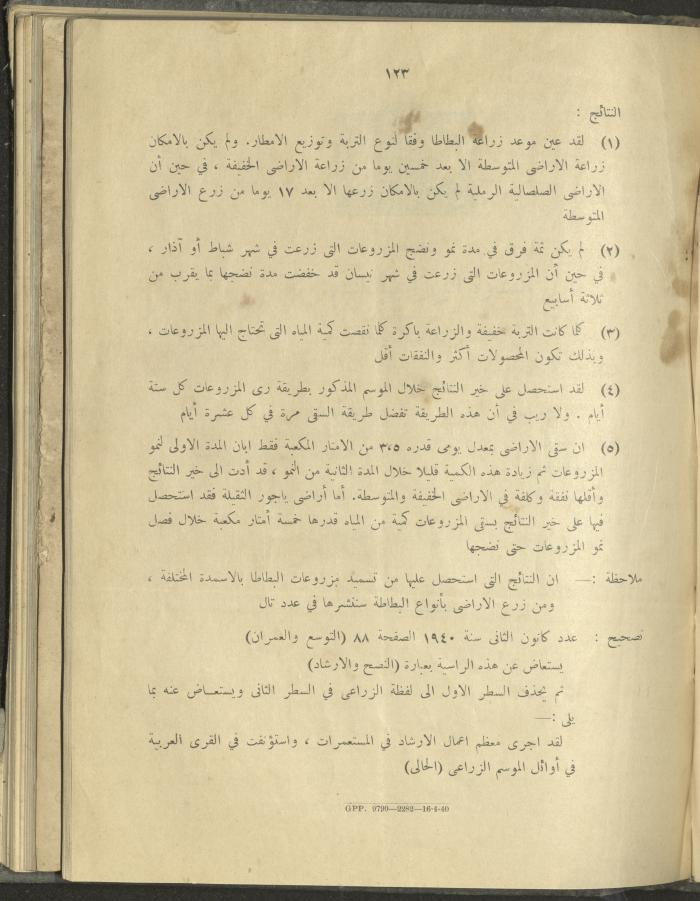 ١٢٣
النتائج :
(١) لقد عين موعد زراعة البطاطا وفقا لنوع التربة وتوزيع الامطار. ولم يكن بالامكان
زراعة الاراضى المتوسطة الا بعد خمسين يوما من زراعة الاراضى الخفيفة ، في حين أن
الاراضى الصلصالية الرملية لم يكن بالامكان زرعها الا بعد ١٧ يوما من زرع الاراضى
المتوسطة
(٢) لم يكن ثمة فرق في مدة نمو ونضج المزروعات التى زرعت في شهر شباط أو آذار ،
في حين أن المزروعات التى زرعت في شهر نيسان قد خفضت مدة نضجها بما يقرب من
ثلاثة أسابيع
(٣) كلما كانت التربة خفيفة والزراعة باكرة كلما نقصت كمية المياه التى تحتاج اليها المزروعات ،
وبذلك تكون المحصولات أكثر والنفقات أقل
(٤) لقد استحصل على خير النتائج خلال الموسم المذكور بطريقة رى المزروعات كل ستة
أيام . ولا ريب في أن هذه الطريقة تفضل طريقة السقى مرة في كل عشرة أيام
(٥) ان سقى الاراضى بمعدل يومى قدره ٣،٥ من الامتار المكعبة فقط ابان المدة الاولى لنمو
المزروعات ثم زيادة هذه الكمية قليلا خلال المدة الثانية من النمو ، قد أدت الى خير النتائج
وأقلها نفقة وكلفة في الاراضى الخفيفة والمتوسطة. أما أراضى ياجور الثقيلة فقد استحصل
فيها على خير النتائج بسقى المزروعات كمية من المياه قدرها خمسة أمتار مكعبة خلال فصل
نمو المزروعات حتى نضجها
ملاحظة :— ان النتائج التى استحصل عليها من تسميد مزروعات البطاطا بالاسمدة المختلفة ،
ومن زرع الاراضى بأنواع البطاطة سننشرها في عدد تال
تصحيح : عدد كانون الثانى سنة ١٩٤٠ الصفحة ٨٨ (التوسع والعمران)
يستعاض عن هذه الراسية بعبارة (النصح والارشاد)
ثم يحذف السطر الاول الى لفظة الزراعى في السطر الثانى ويستعاض عنه بما
يلى :—
لقد اجرى معظم اعمال الارشاد في المستعمرات ، واستؤنفت في القرى العربية
في أوائل الموسم الزراعى (الحالى)
GPP. 9790—2282—16-4-40